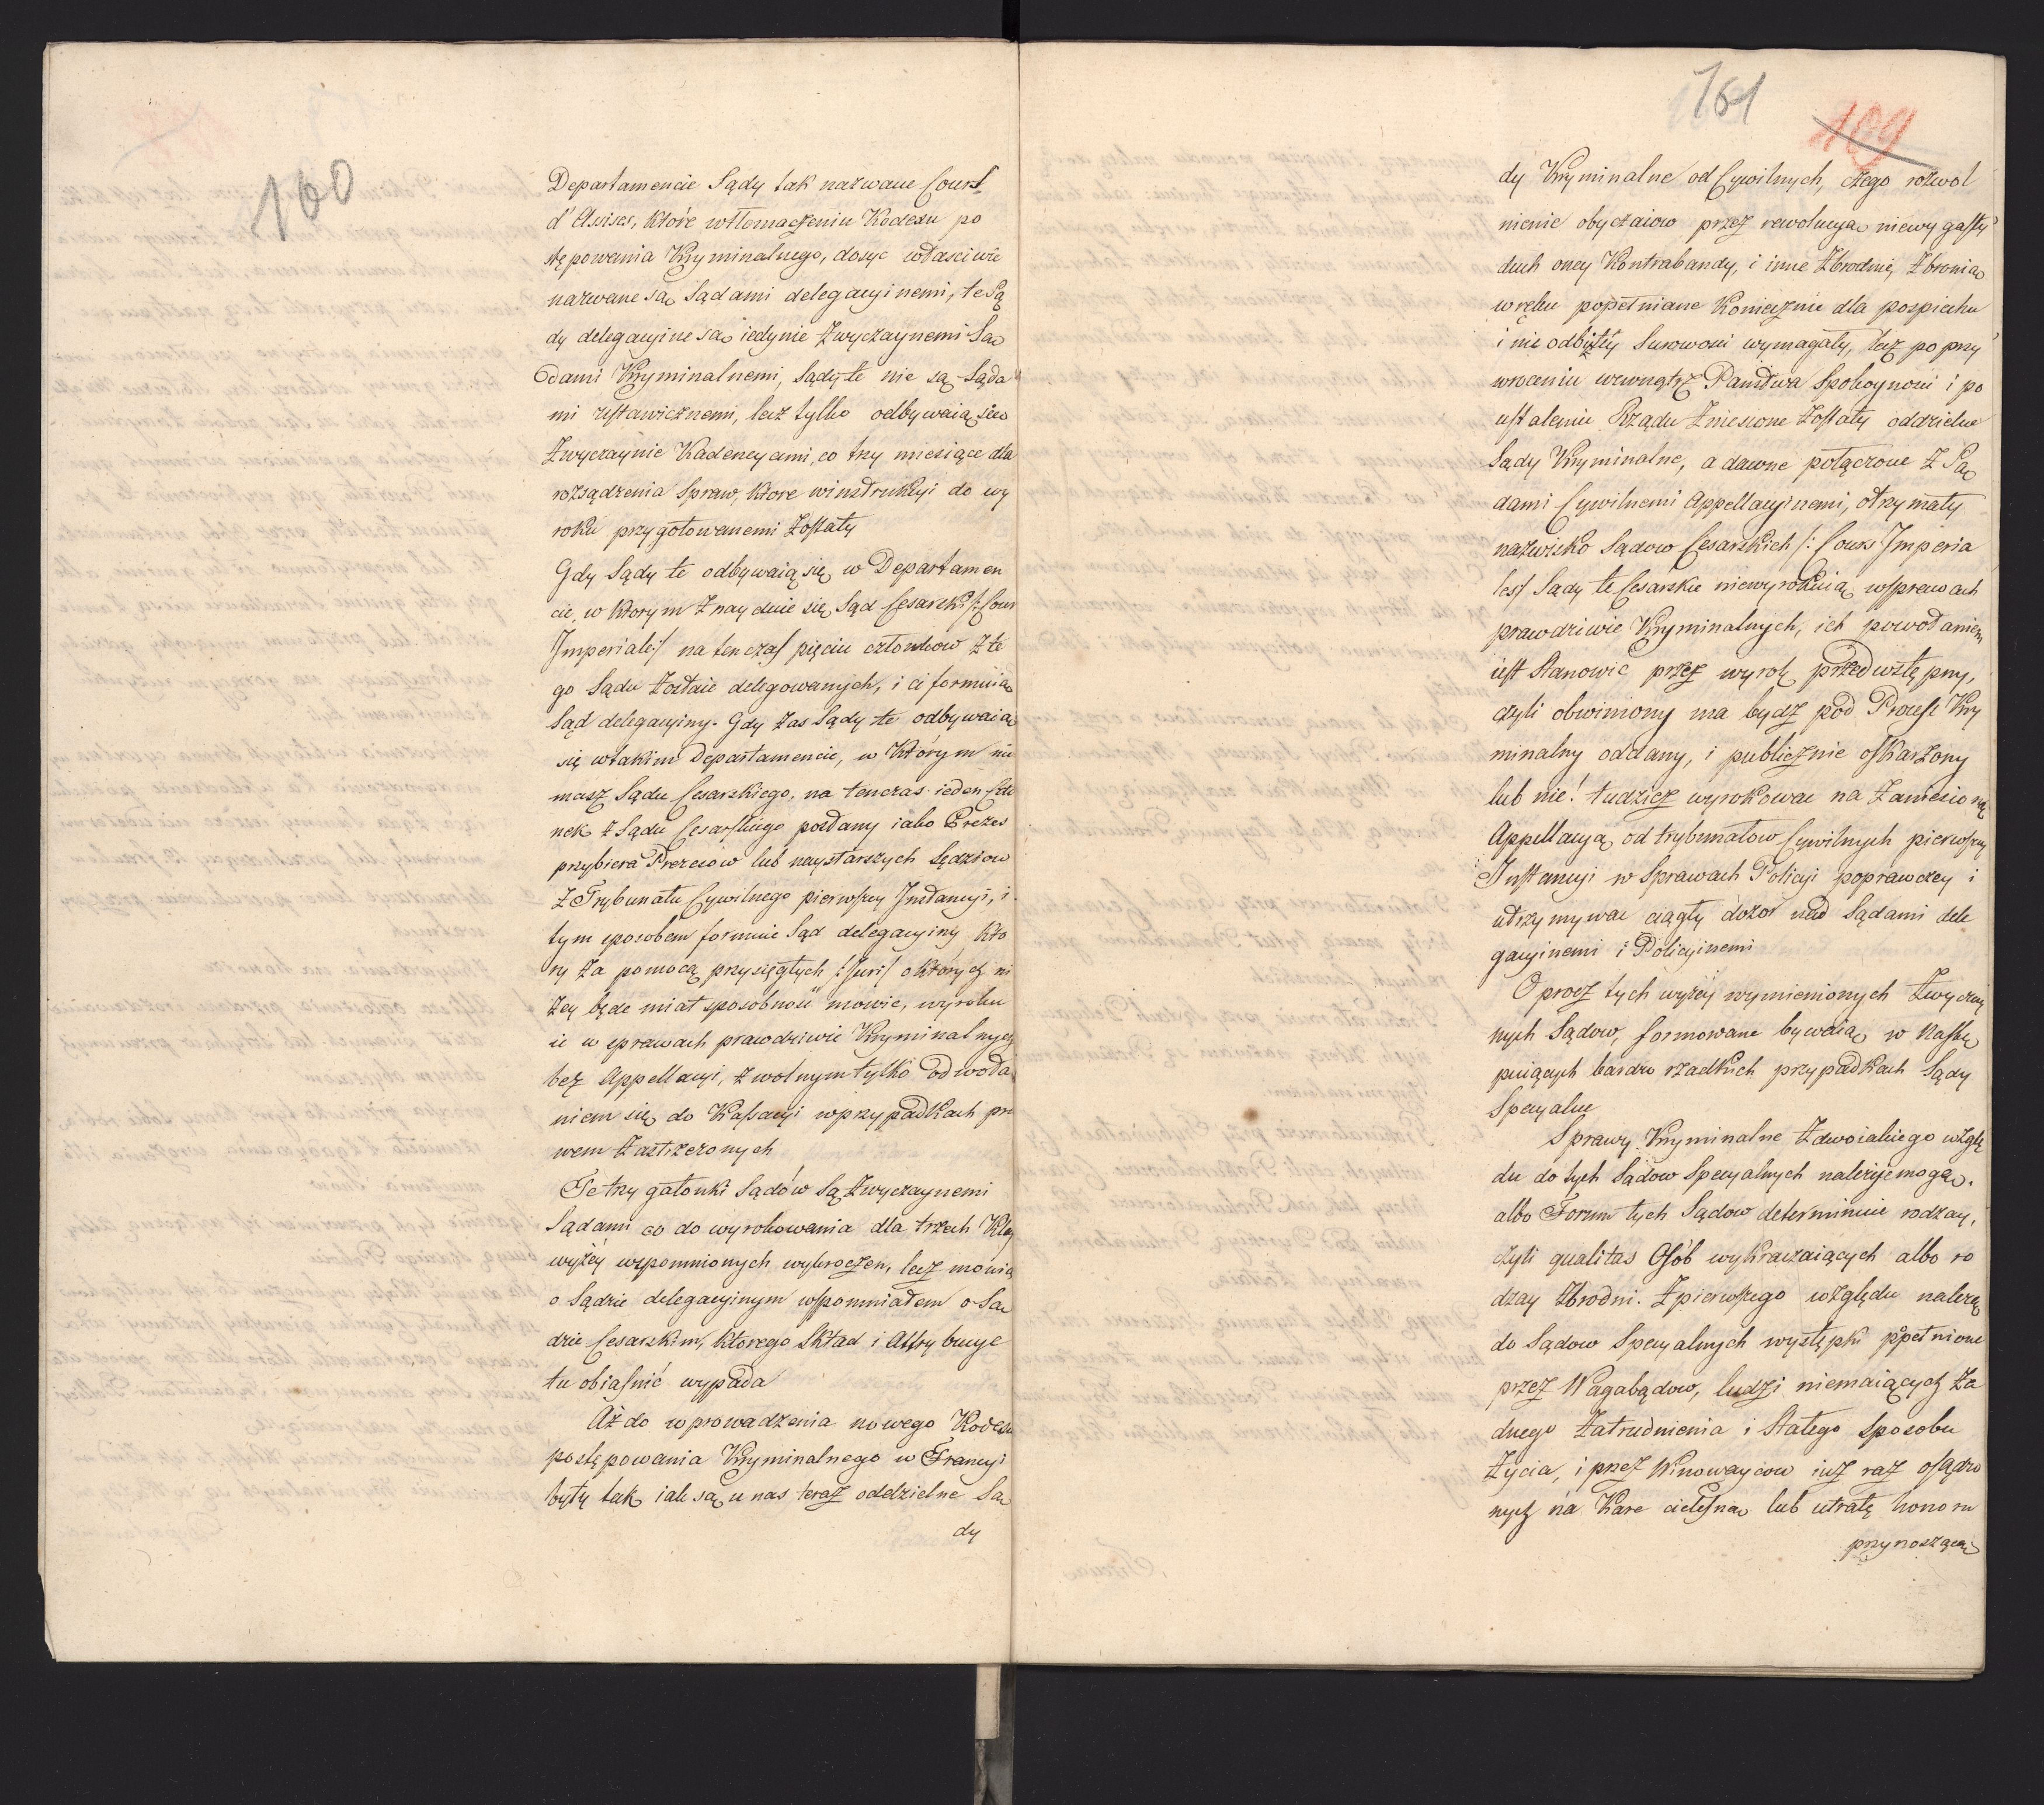 160
Departamencie Sądy tak nazwane Cours
d'Assises, które wtłomaczeniu Kodexu po
stępowania Kryminalnego, dosyc własciwie
nazwane są Sądami delegacyinemi, te Są
dy delegacyine są iedynie zwyczaynemi Są
dami Kryminalnemi, Sądy te nie są Sąda
mi ustawicznemi, lecz tylko odbywaią się
zwyczaynie Kadencyami, co trzy miesiące dla
rozsądzenia Spraw, które winstrukcyi do wy
roku przygotowanemi zostały
Gdy Sądy te odbywaią się w Departamen
cie, w ktorym znayduie się Sąd Cesarski /: Cour
Imperiale :/ na tenczas pięciu członkow z te
go Sądu zostaie delegowanych, i ci formuią
Sąd delegacyiny. Gdy zas Sądy te odbywaią
się wtakim Departamencie, w którym nie
masz Sądu Cesarskiego, na tenczas ieden Czło
nek z Sądu Cesarskiego posłany iako Prezes
przybiera Prezesow lub naystarszych Sędziow
z Trybunału Cywilnego pierwszey Instancyi, i
tym sposobem formuie Sąd delegacyiny kto
ry za pomocą przysięgłych /: Juri :/ o których ni
żey będe miał sposobność mowic, wyroku
ie w sprawach prawdziwie Kryminalnych
bez Appellacyi, z wolnym tylko odwoła
niem się do Kassacyi wprzypadkach pra
wem zastrzeżonych
Te trzy gatonki Sądów są zwyczaynemi
Sądami co do wyrokowania dla trzech Klas
wyżey wspomnionych wykroczen, lecz mowiąc
o Sądzie delegacyinym wspomniałem o Są
dzie Cesarskim, ktorego Skład i Attrybucye
tu obiasnić wypada
Aż do wprowadzenia nowego Kodexu
postępowania Kryminalnego w Francyi
były tak iak są u nas teraz oddzielne Są
dy
161
109
dy Kryminalne od Cywilnych, czego rozwol
nienie obyczaiow przez rewolucyą niewygasły
duch oney Kontrabandy, i inne zbrodnie, zbronią
w ręku popełniane koniecznie dla pospiechu
i nieodbitey Surowosci wymagały, lecz po przy
wroceniu wewnątrz Panstwa Spokoynosci i po
ustaleniu Rządu zniesione zostały oddzielne
Sądy Kryminalne, a dawne połączone z Są
dami Cywilnemi Appellacyinemi, otrzymały
nazwisko Sądow Cesarskich /: Cours Imperia
les :/ Sądy te Cesarskie niewyrokuią wsprawach
prawdziwie Kryminalnych, ich powołaniem
iest Stanowic przez wyrok przedwstępny,
czyli obwiniony ma bydz pod Process Kry
minalny oddany, i publicznie oskarżony
lub nie! tudzież wyrokowac na zaniesioną
Appellacyą od trybunałow Cywilnych pierwszey
Instancyi w Sprawach Policyi poprawczey i
utrzymywac ciągły dozor nad Sądami dele
gacyinemi i Policyinemi
Oprocz tych wyżey wymienionych zwyczay
nych Sądow, formowane bywaią w Nastę
puiących bardzo rzadkich przypadkach Sądy
Specyalne
Sprawy Kryminalne zdwoiakiego wzglę
du do tych Sądow Specyalnych należyć mogą.
albo Forum tych Sądow determinuie rodzay,
czyli qualitas Osób wykraczaiących albo ro
dzay zbrodni. Zpierwszego względu należą
do Sądow Specyalnych występki popełnione
przez Wagabądow, ludzi niemaiących ża
dnego zatrudnienia i Stałego sposobu
życia, i przez Winowaycow iuż raz osądzo
nych na Kare cielesną lub utratę honoru
przynoszącą